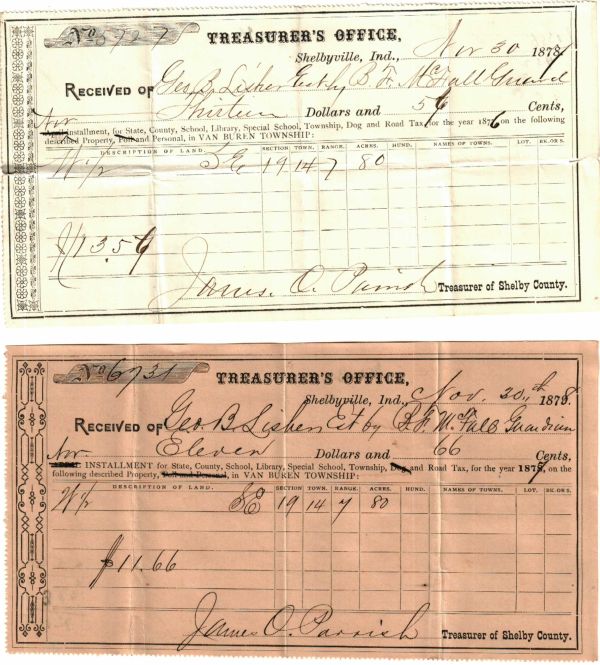 No 5727
TREASURER'S OFFICE,
Shelbyville, Ind., Nov 30 1877
RECEIVED OF Geo. B. Lisher Est by B F McFall Guard
Thirteen Dollars and 56 Cents,
Nov
Installment, for State, County, School, Library, Special School, Township, Dog and Road Tax, for the year 1876 on the following
described Property, Poll and Personal, in VAN BUREN TOWNSHIP:
DESCRIPTION OF LAND. SECTION TOWN. RANGE. ACRES. HUND. NAMES OF TOWNS. LOT. BK. OR S.
W ½ SE 19 14 7 80
$13.56
James. O. Parrish Treasurer of Shelby County.
No 6731
TREASURER'S OFFICE,
Shelbyville, Ind., Nov. 30th 1878.
RECEIVED OF Geo. B Lisher Est by B. F. McFall Guardian
Eleven Dollars and 66 Cents,
Nov.
INSTALLMENT for State, County, School, Library, Special School, Township, Dog and Road Tax, for the year 1877, on the
following described Property, Poll and Personal, in VAN BUREN TOWNSHIP:
DESCRIPTION OF LAND. SECTION TOWN. RANGE. ACRES. HUND. NAMES OF TOWNS. LOT. BK. OR S.
W ½ SE 19 14 7 80
$11.66
James O. Parrish Treasurer of Shelby County.